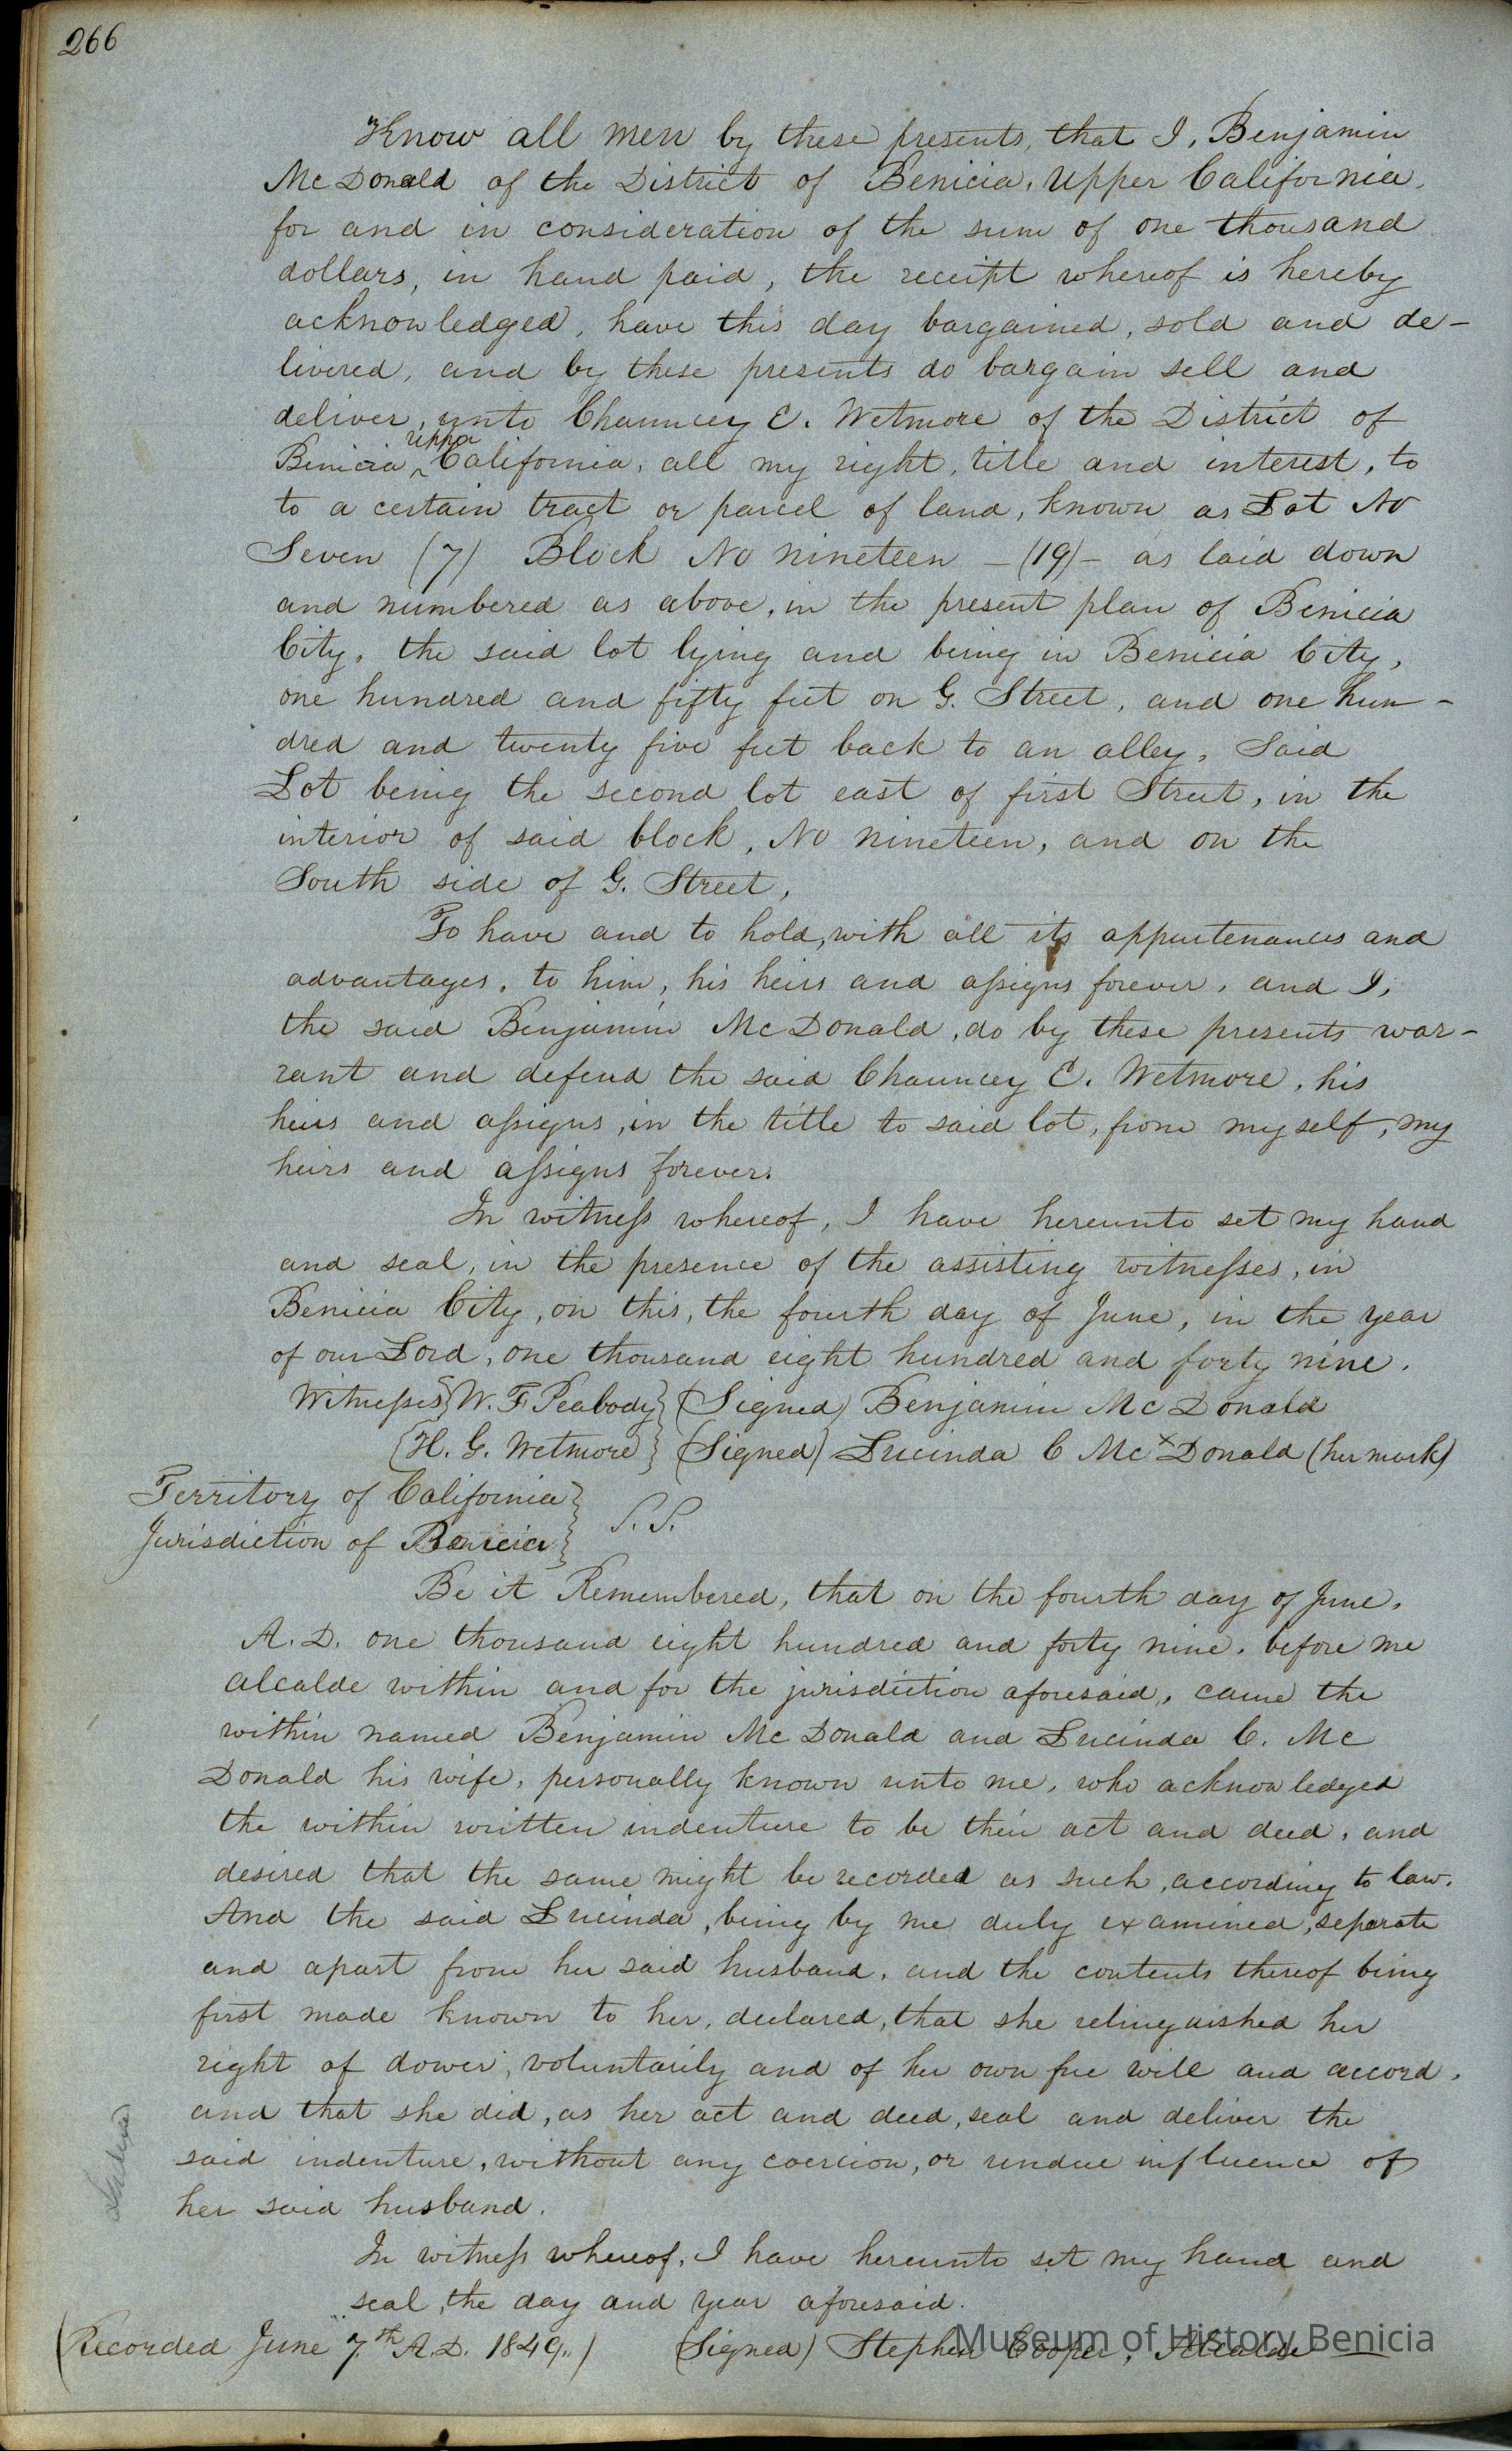 266
Know all men by these presents, that I, Benjamin
McDonald of the District of Benicia, Upper California,
for and in consideration of the sum of one thousand
dollars, in hand paid, the receipt whereof is hereby
acknowledged, have this day bargained, sold and de-
livered, and by these presents do bargain sell and
deliver, unto Chauncey E. Wetmore of the District of
Upper
Benicia, ^ California, all my right, title and interest, to
to a certain tract or parcel of land, known as Lot No
Seven (7) Block No nineteen - (19) - as laid down
and numbered as above, in the present plan of Benicia
City, the said lot lying and being in Benicia City,
one hundred and fifty feet on G. Street, and one hun-
dred and twenty five feet back to an alley, Said
Lot being the second lot east of first Street, in the
interior of said block, No nineteen, and on the
South side of G. Street,
To have and to hold, with all its appurtenances and
advantages, to him, his heirs and assigns forever, and I,
the said Benjamin McDonald, do by these presents war-
rant and defend the said Chauncey E. Wetmore, his
heirs and assigns, in the title to said lot, from myself, my
heirs and assigns forever.
In witness whereof, I have hereunto set my hand
and seal, in the presence of the assisting witnesses, in
Benicia City, on this, the fourth day of June, in the year
of our Lord, one thousand eight hundred and forty nine.
Witnesses { W. F. Peabody } (Signed) Benjamin McDonald
{ H. G. Wetmore } (Signed) Lucinda C Mc x Donald (her mark)
Territory of California }
Jurisdiction of Benicia } S.S.
Be it Remembered, that on the fourth day of June,
A.D. one thousand eight hundred and forty nine, before me
alcalde within and for the jurisdiction aforesaid, came the
within named Benjamin McDonald and Lucinda C. Mc
Donald his wife, personally known unto me, who acknowledged
the within written indenture to be their act and deed, and
desired that the same might be recorded as such, according to law.
And the said Lucinda, being by me duly examined, separate
and apart from her said husband, and the contents thereof being
first made known to her, declared, that she relinquished her
right of dower, voluntarily and of her own free will and accord,
and that she did, as her act and deed, seal and deliver the
said indenture, without any coercion, or undue influence of
her said husband.
In witness whereof, I have hereunto set my hand and
seal, the day and year aforesaid.
(Recorded June 7th A.D. 1849.) (Signed) Stephen Cooper, Alcalde
Museum of History Benicia